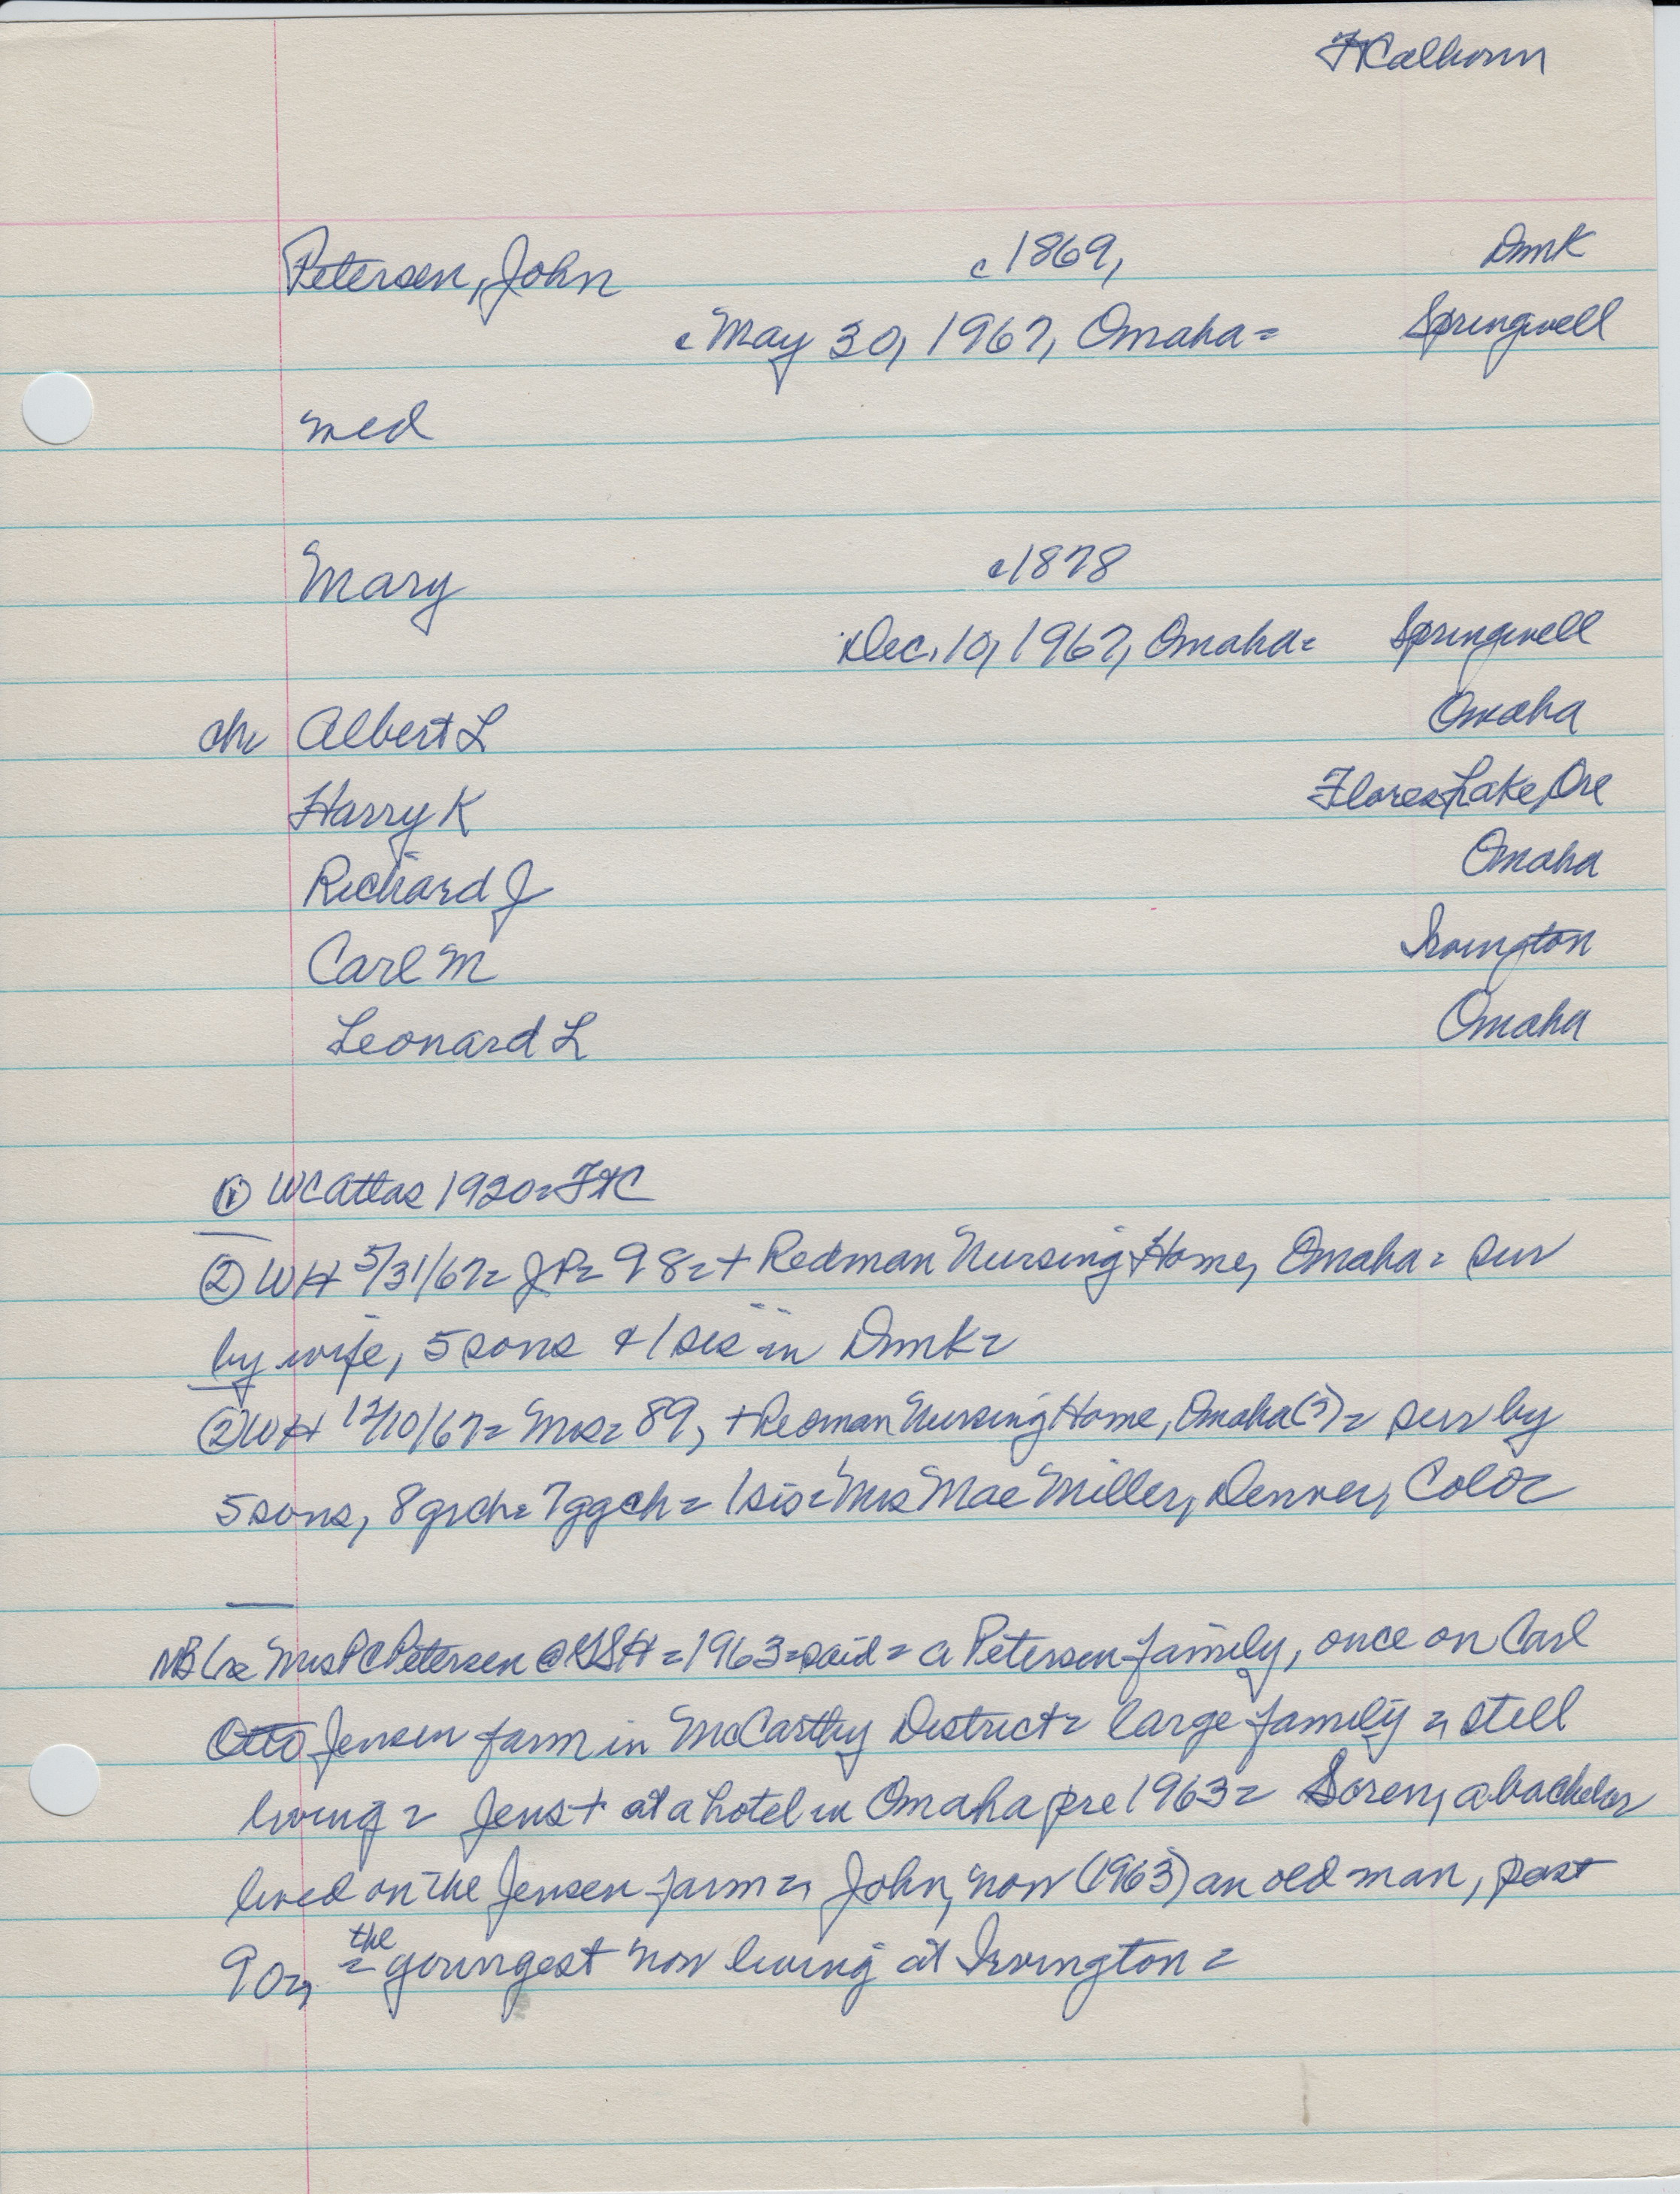 Ft Calhoun
Petersen, John c 1869, Dmk
c May 30, 1967, Omaha = Springwell
med
Mary c 1878
Dec. 10, 1967, Omaha = Springwell
ch Albert L Omaha
Harry K Flores Lake, Ore
Richard J Omaha
Carl M Irvington
Leonard L Omaha
① WC Atlas 1920 = FtC
② WH 5/31/67 = JP = 98 = + Redman Nursing Home, Omaha = sur
by wife, 5 sons & 1 sis in Dmk =
② WH 12/10/67 = Mrs = 89, + Redman Nursing Home, Omaha (?) = surv by
5 sons, 8 grch = 7 ggch = 1 sis = Mrs Mae Miller, Denver, Colo =
NB Mrs P C Petersen @ = 1963 = said = a Petersen family, once on Carl
Otto Jensen farm in McCarthy District = large family = still
living = Jens + at a hotel in Omaha pre 1963 = Soren, a bachelor
lived on the Jensen farm = John, now (1963) an old man, past
90 = the youngest now living at Irvington =